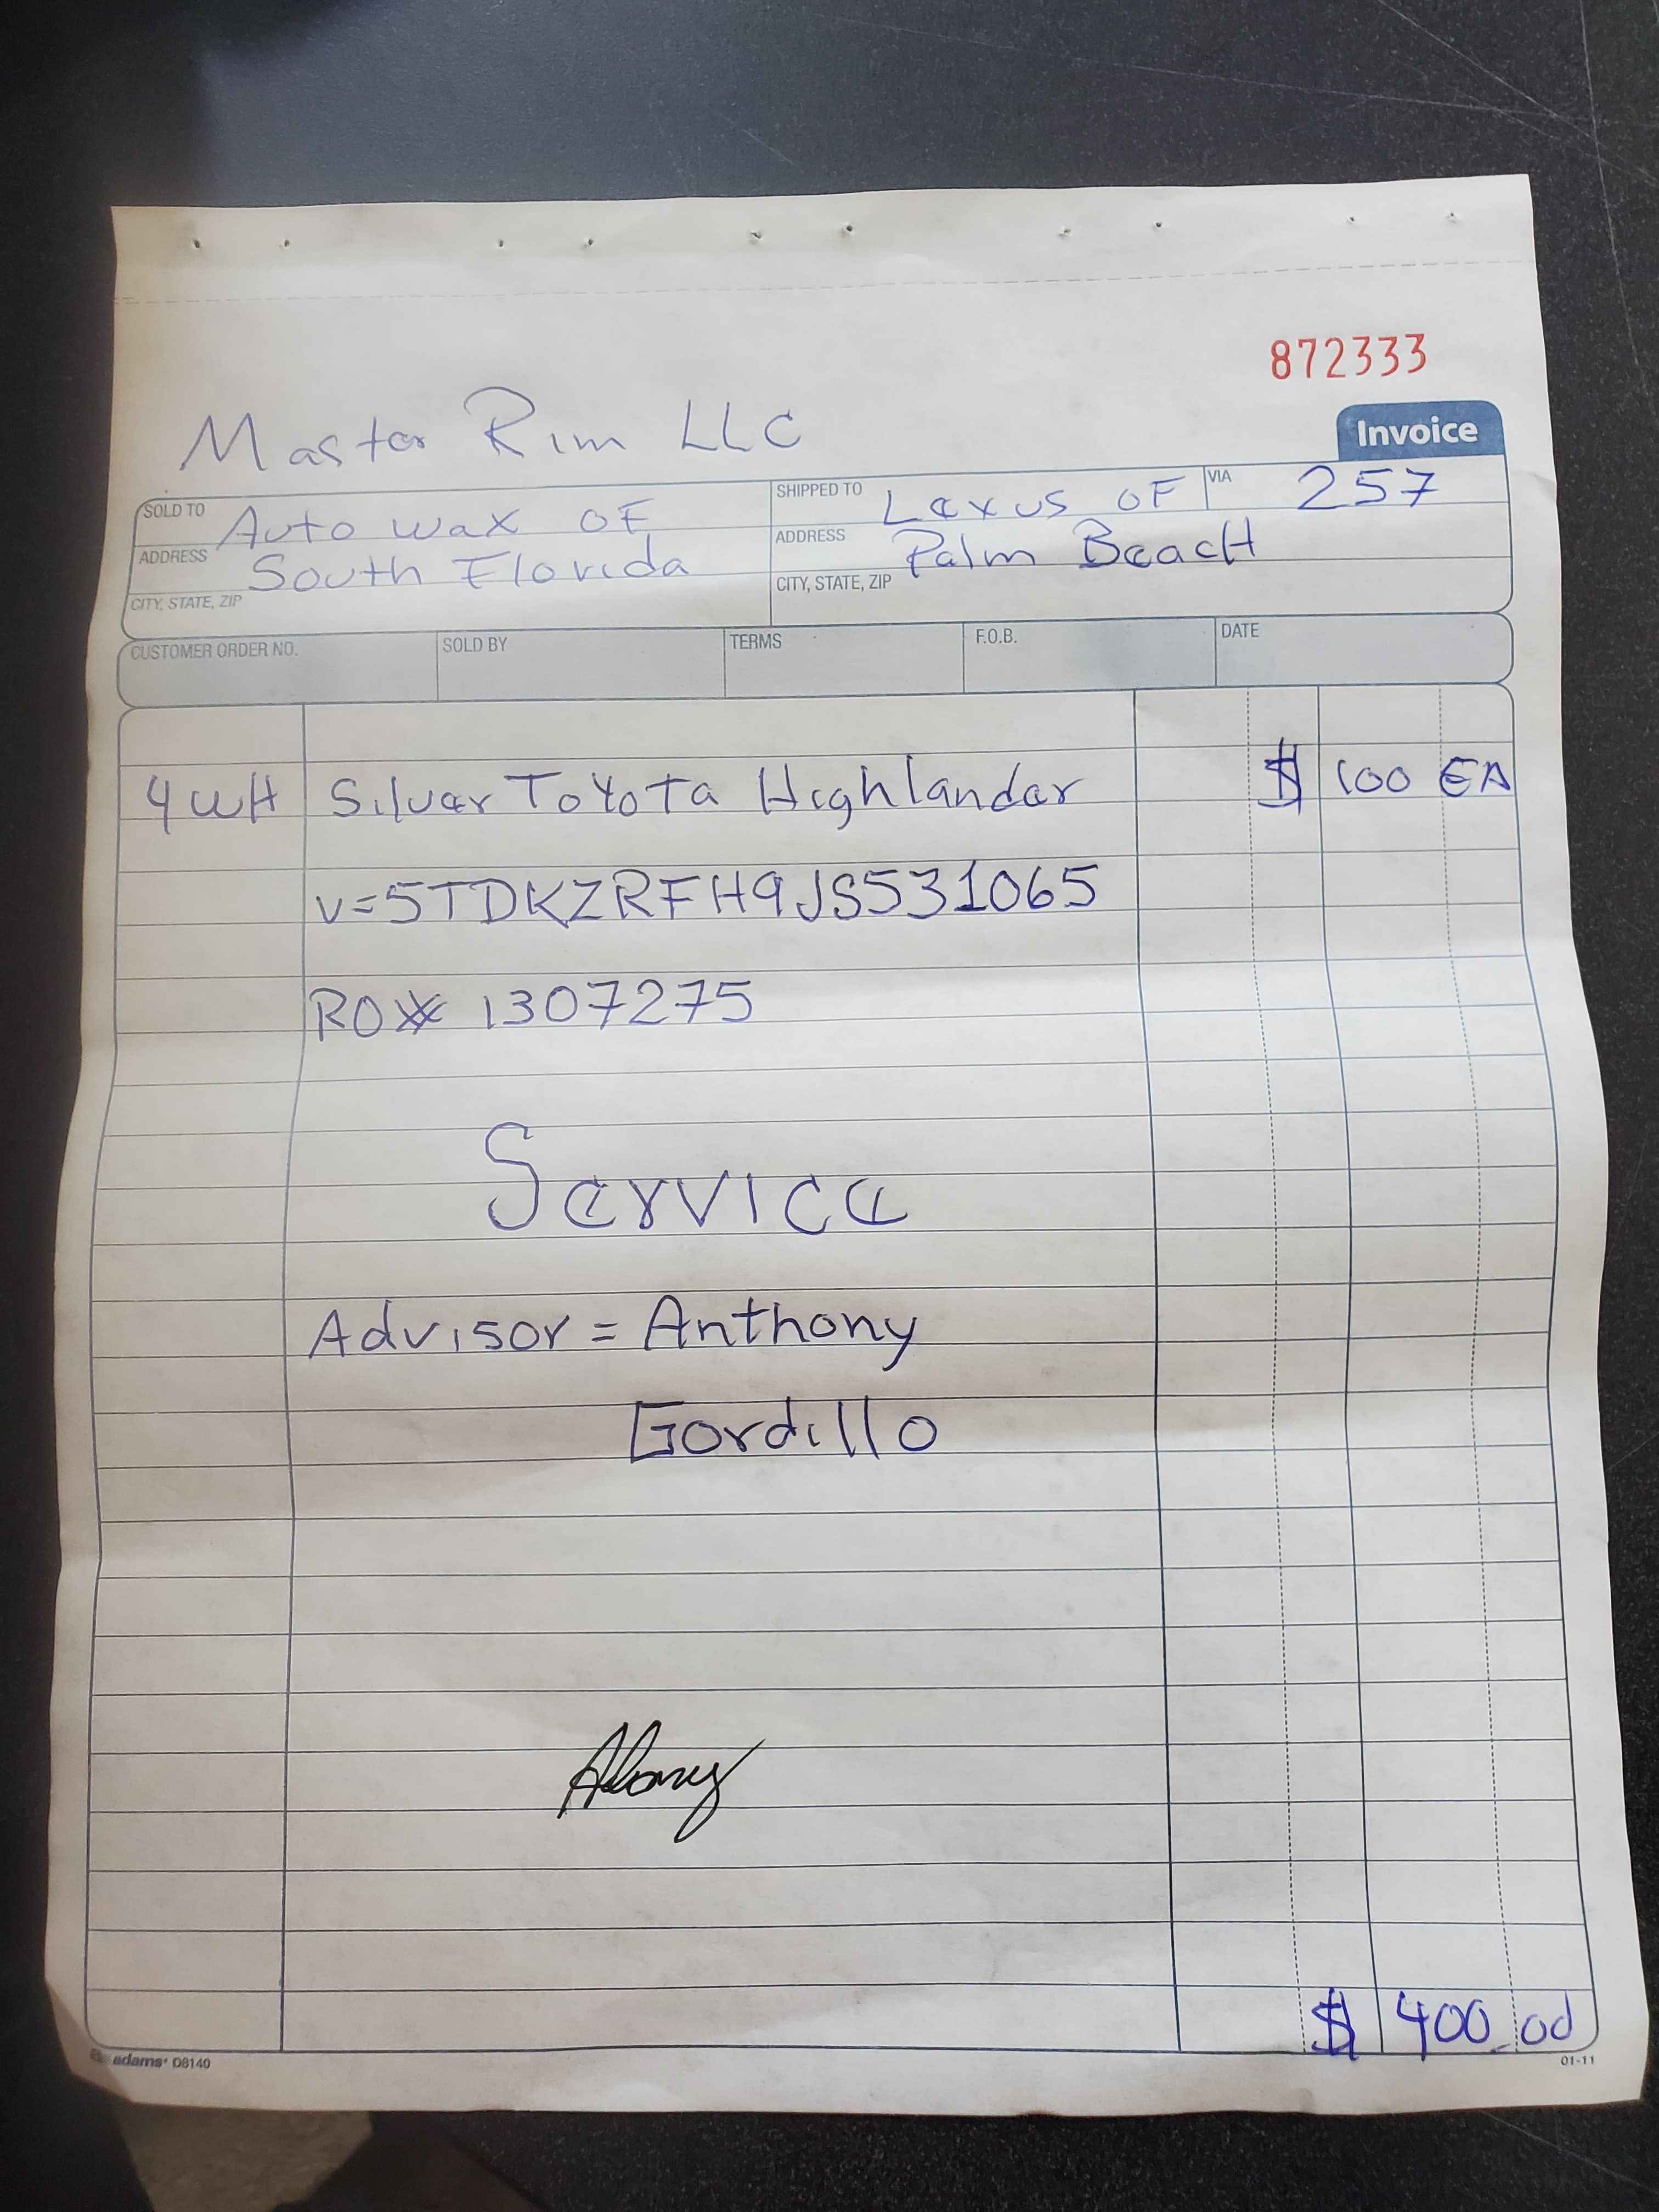 872333
Master Rim LLC
Invoice
SOLD TO Auto wax OF
ADDRESS South Florida
CITY, STATE, ZIP
SHIPPED TO Lexus OF
ADDRESS Palm BeacH
CITY, STATE, ZIP
VIA 257
CUSTOMER ORDER NO. SOLD BY TERMS F.O.B. DATE
4 WH Silver ToYoTa Highlander $ 100 EA
V=5TDKZRFH9JS531065
RO# 1307275
Service
Advisor = Anthony
Gordillo
$ 400.00
adams® D8140 01-11